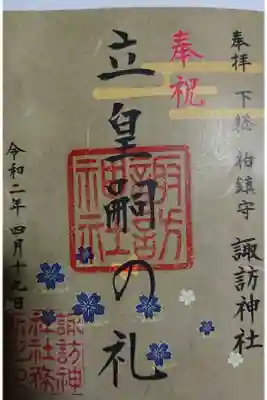 奉拝 下総 柏鎮守 諏訪神社
奉祝
立皇嗣の礼
諏訪
神社
令和二年四月十九日
諏訪神
社社務
所之印